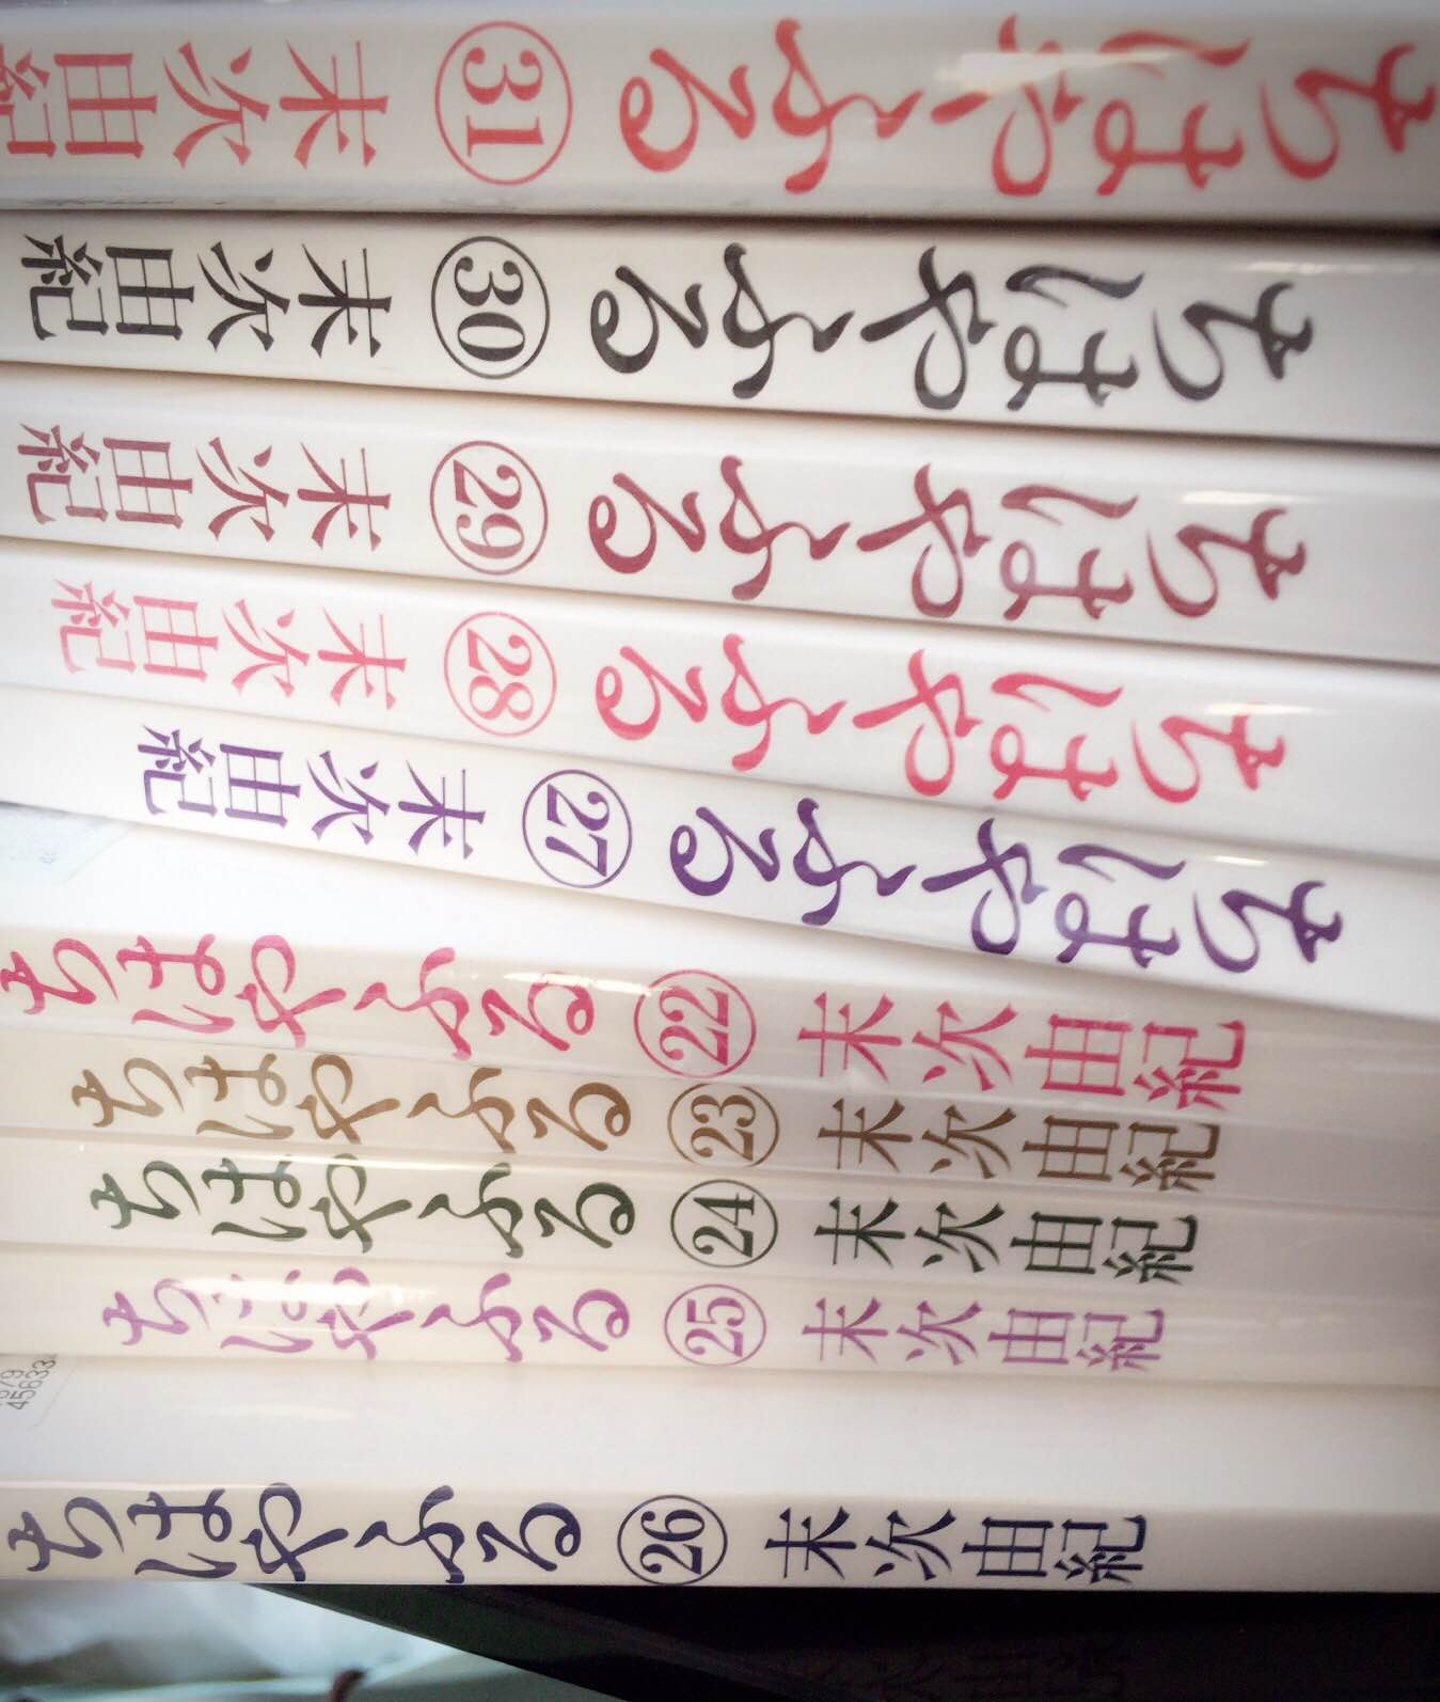 ちはやふる 31 末次由紀
ちはやふる 30 末次由紀
ちはやふる 29 末次由紀
ちはやふる 28 末次由紀
ちはやふる 27 末次由紀
ちはやふる 22 末次由紀
ちはやふる 23 末次由紀
ちはやふる 24 末次由紀
ちはやふる 25 末次由紀
ちはやふる 26 末次由紀